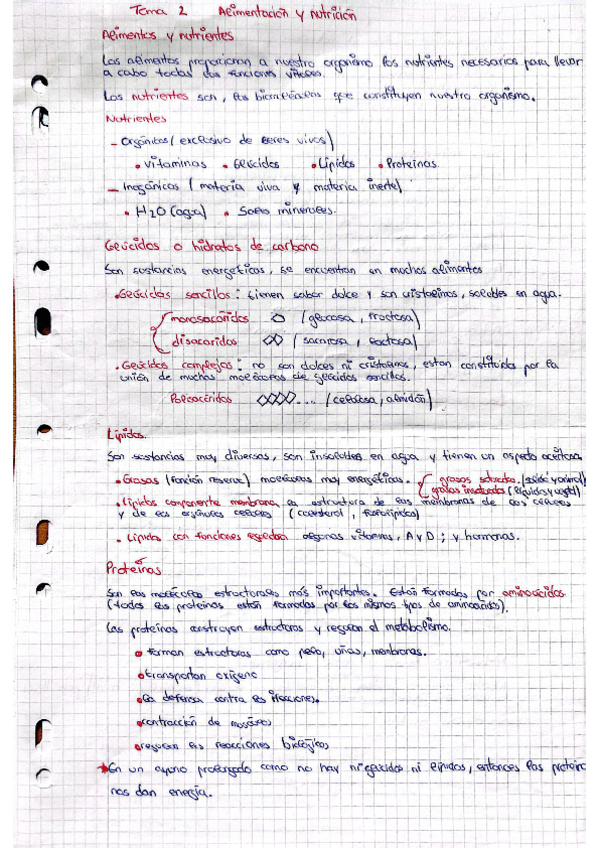 Tema 2 Alimentación y nutrición
Alimentos y nutrientes
Los alimentos proporcionan a nuestro organismo los nutrientes necesarios para llevar
a cabo todas sus funciones vitales.
Los nutrientes son, las biomoléculas que constituyen nuestro organismo.
Nutrientes
- Orgánicos (exclusivo de seres vivos)
• vitaminas • Glúcidos • Lípidos • Proteínas
- Inorgánicos (materia viva y materia inerte)
• H2O (agua) • Sales minerales.
Glúcidos o hidratos de carbono
Son sustancias energéticas, se encuentran en muchos alimentos
• Glúcidos sencillos: tienen sabor dulce y son cristalinos, solubles en agua.
monosacáridos (glucosa, fructosa)
disacáridos (sacarosa, lactosa)
• Glúcidos complejos: no son dulces ni cristalinos, están constituidos por la
unión de muchas moléculas de glúcidos sencillos.
Polisacáridos .... (celulosa, almidón)
Lípidos.
Son sustancias muy diversas, son insolubles en agua y tienen un aspecto aceitoso
• Grasas (función reserva) moléculas muy energéticas. grasas saturadas (sólida y animal)
grasas insaturadas (líquidas y vegetal)
• Lípidos componente membrana la estructura de las membranas de las células
y de los orgánulos celulares (colesterol, fosfolípidos)
• Lípidos con funciones algunas vitaminas, A y D; y hormonas.
Proteínas
Son las moléculas estructurales más importantes. Están formadas por aminoácidos
(todas las proteínas están formadas por los mismos tipos de aminoácidos).
Las proteínas construyen estructuras y regulan el metabolismo.
• forman estructuras como pelo, uñas, membranas.
• transportan oxígeno
• la defensa contra las infecciones.
• contracción de músculos
• regulan las reacciones biológicas
* En un ayuno prolongado como no hay ni glúcidos ni lípidos, entonces las proteínas
nos dan energía.